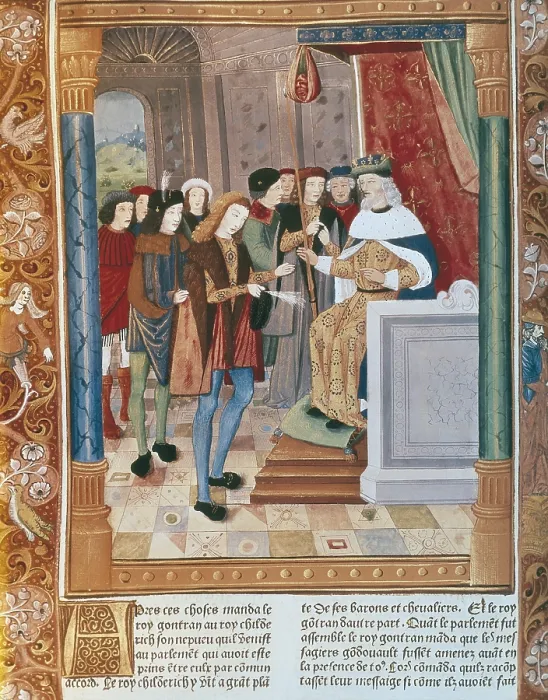 Apres ces choses manda le
roy gontran au roy childe
rich son nepueu quil venist
au parlemēt qui auoit este
prins ētre eulx par cōmun
accord. Le roy childerich y vīt a grāt plā
te de ses barons et cheualiers. Et le roy
gōtran dautre part. Quāt le parlemēt fut
assemble le roy gontran māda que les mes
sagiers gōdouault fussēt amenez auāt en
la presence de toꝰ. Lors cōmāda quilz racōp
tassēt leur messaige si cōme ilz auoiēt fait